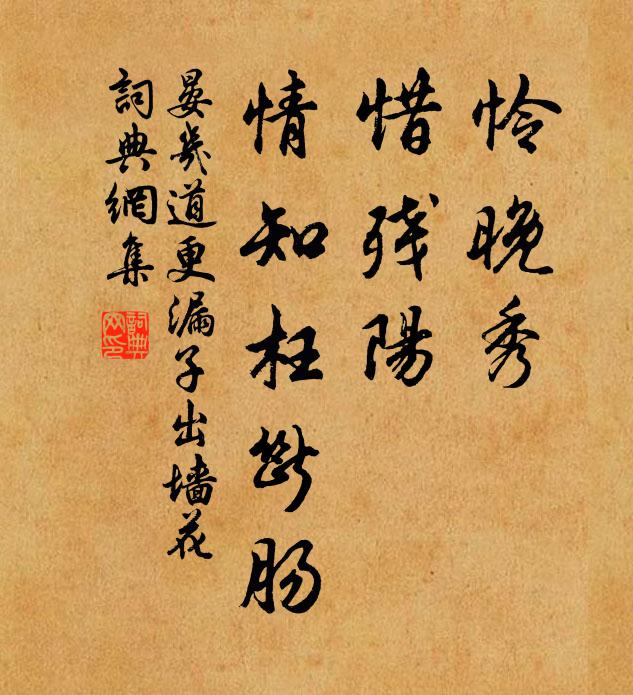 怜晚秀
惜残陽
情知枉断肠
晏幾道更漏子出墙花
詞典網集
詞典網印